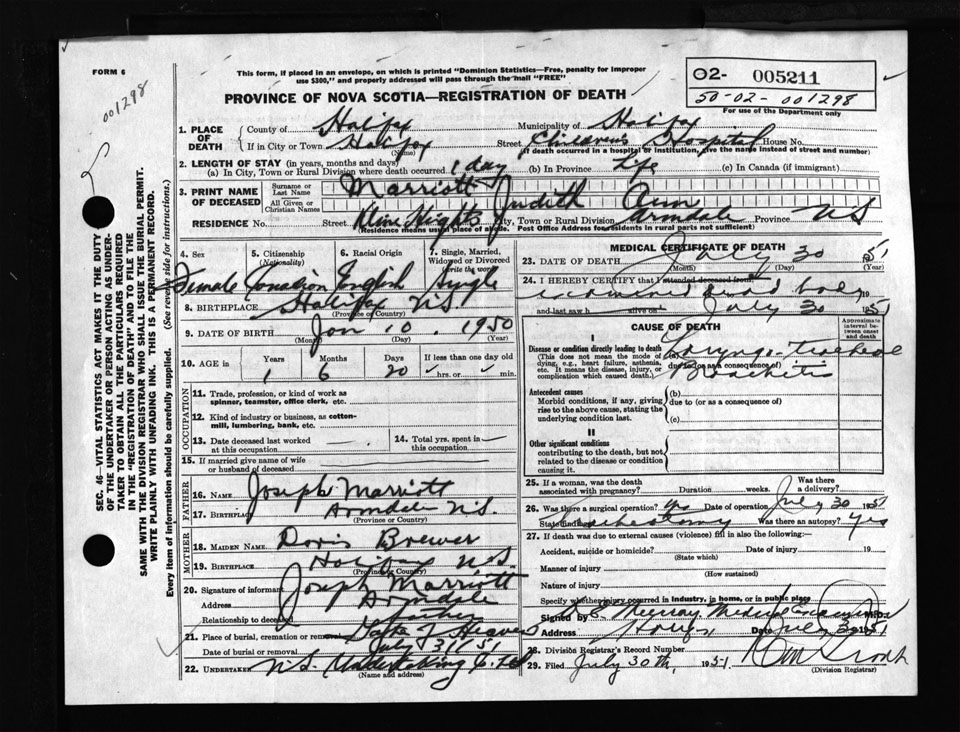 FORM 6
001298
This form, if placed in an envelope, on which is printed "Dominion Statistics—Free, penalty for improper
use $300," and properly addressed will pass through the mail "FREE"
PROVINCE OF NOVA SCOTIA—REGISTRATION OF DEATH
O2- 005211
50-02-001298
For use of the Department only
SEC. 46—VITAL STATISTICS ACT MAKES IT THE DUTY
OF THE UNDERTAKER OR PERSON ACTING AS UNDER-
TAKER TO OBTAIN ALL THE PARTICULARS REQUIRED
IN THE "REGISTRATION OF DEATH" AND TO FILE THE
SAME WITH THE DIVISION REGISTRAR WHO SHALL ISSUE THE BURIAL PERMIT.
WRITE PLAINLY WITH UNFADING INK. THIS IS A PERMANENT RECORD.
Every item of information should be carefully supplied. (See reverse side for instructions.)
1. PLACE OF DEATH
County of Halifax Municipality of Halifax
If in City or Town Halifax Street Children's Hospital House No.
(Name) (If death occurred in a hospital or institution, give the name instead of street and number)
2. LENGTH OF STAY (in years, months and days)
(a) In City, Town or Rural Division where death occurred 1 day (b) In Province Life (c) In Canada (if immigrant)
3. PRINT NAME OF DECEASED
Surname or Last Name Marriott
All Given or Christian Names Judith Ann
RESIDENCE No. Street Kline Heights City, Town or Rural Division Armdale Province N S
(Residence means usual place of abode. Post Office Address for residents in rural parts not sufficient)
4. Sex 5. Citizenship (Nationality) 6. Racial Origin 7. Single, Married, Widowed or Divorced (write the word)
Female Canadian English Single
8. BIRTHPLACE Halifax N.S.
(Province or Country)
9. DATE OF BIRTH Jan 10. 1950
(Month) (Day) (Year)
10. AGE in Years Months Days If less than one day old
1 6 20 hrs. or min.
OCCUPATION
11. Trade, profession, or kind of work as
spinner, teamster, office clerk, etc.
12. Kind of industry or business, as cotton-
mill, lumbering, bank, etc.
13. Date deceased last worked
at this occupation
14. Total yrs. spent in
this occupation
15. If married give name of wife
or husband of deceased
FATHER
16. NAME Joseph Marriott
17. BIRTHPLACE Armdale N.S.
(Province or Country)
MOTHER
18. MAIDEN NAME Doris Brewer
19. BIRTHPLACE Halifax N.S.
(Province or Country)
20. Signature of informant Joseph Marriott
Address Armdale
Relationship to deceased Father
21. Place of burial, cremation or removal Gate of Heaven
Date of burial or removal July 31/51
22. UNDERTAKER N.S. Undertaking Co. Ltd
(Name and address)
MEDICAL CERTIFICATE OF DEATH
23. DATE OF DEATH July 30 1951
(Month) (Day) (Year)
24. I HEREBY CERTIFY that I attended deceased from
examined dead body
and last saw h alive on July 30 1951
CAUSE OF DEATH
Approximate interval between onset and death
I
Disease or condition directly leading to death
(This does not mean the mode of
dying, e.g., heart failure, asthenia,
etc. It means the disease, injury, or
complication which caused death.)
(a) Laryngo-tracheal
due to (or as a consequence of)
Bronchitis
Antecedent causes
Morbid conditions, if any, giving
rise to the above cause, stating the
underlying condition last.
(b)
due to (or as a consequence of)
(c)
II
Other significant conditions
contributing to the death, but not
related to the disease or condition
causing it.
25. If a woman, was the death
associated with pregnancy? Duration weeks. Was there a delivery?
26. Was there a surgical operation? Yes Date of operation July 30 1951
State findings Tracheotomy Was there an autopsy? Yes
27. If death was due to external causes (violence) fill in also the following:
Accident, suicide or homicide? Date of injury 19
(State which)
Manner of injury
(How sustained)
Nature of injury
Specify whether injury occurred in industry, in home, or in public place
Signed by Murray Medical Examiner
Address Halifax Date July 30 1951
28. Division Registrar's Record Number
29. Filed July 30th, 1951
(Division Registrar)